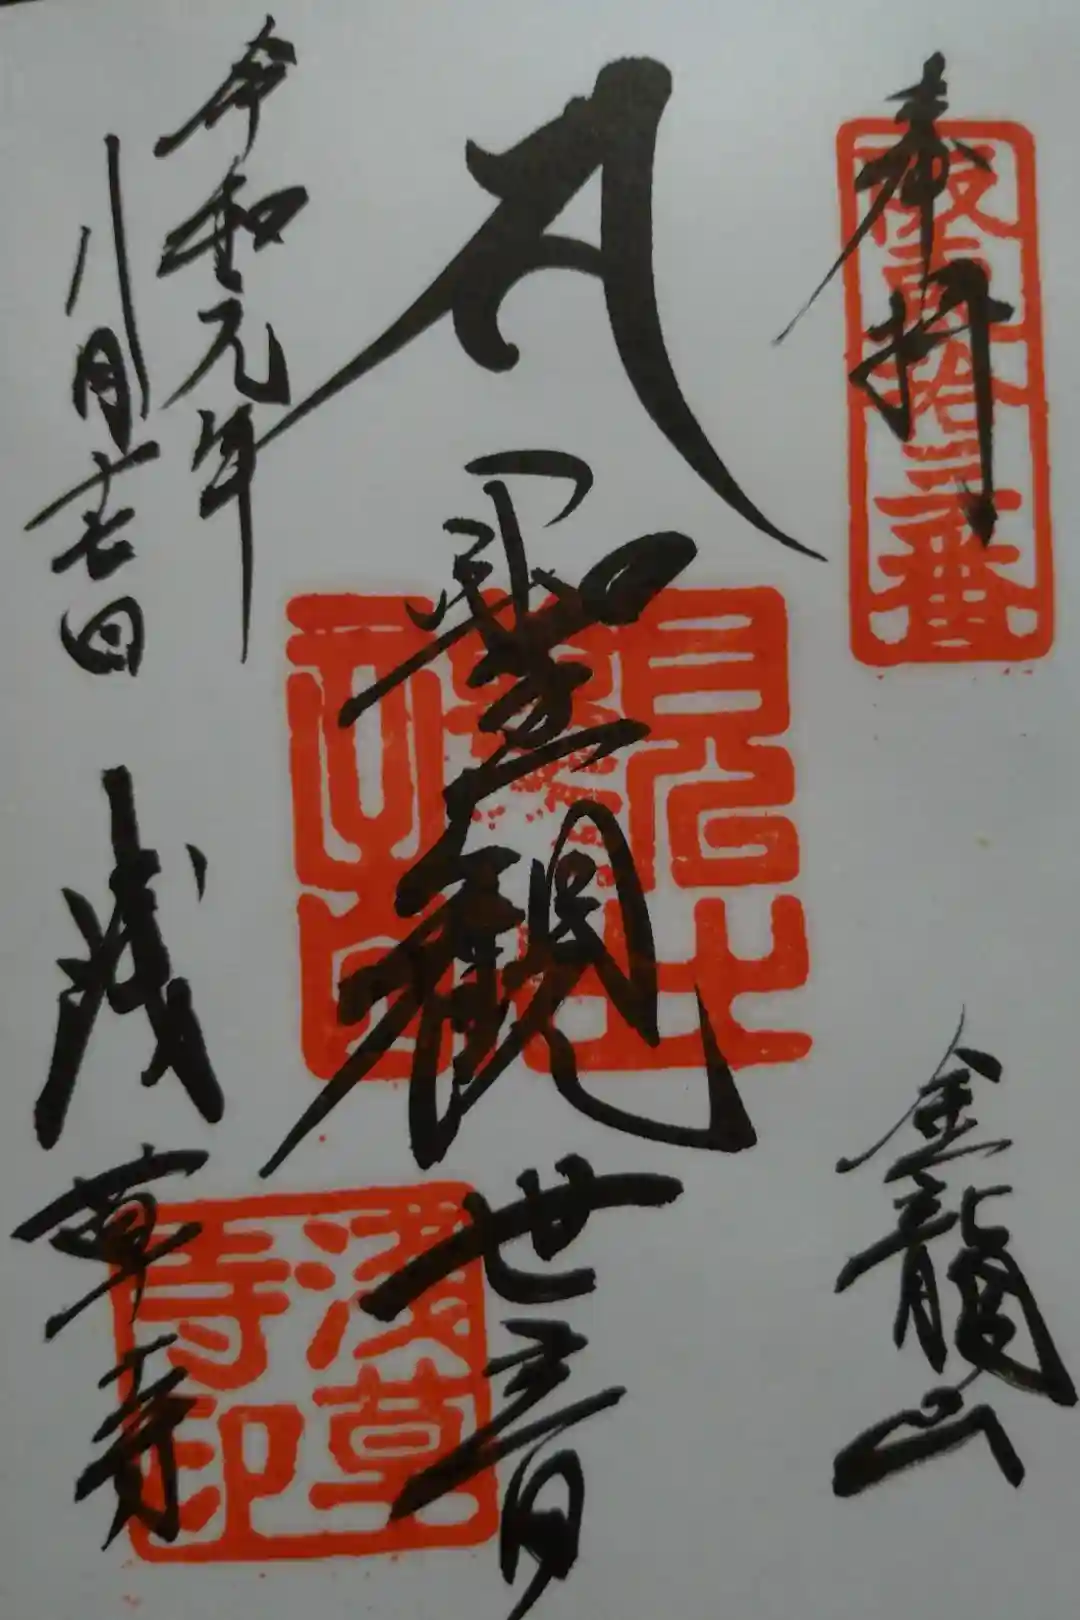 奉拝
坂東拾三番
金龍山
聖観世音
令和元年
八月廿七日
浅草寺
浅草寺印